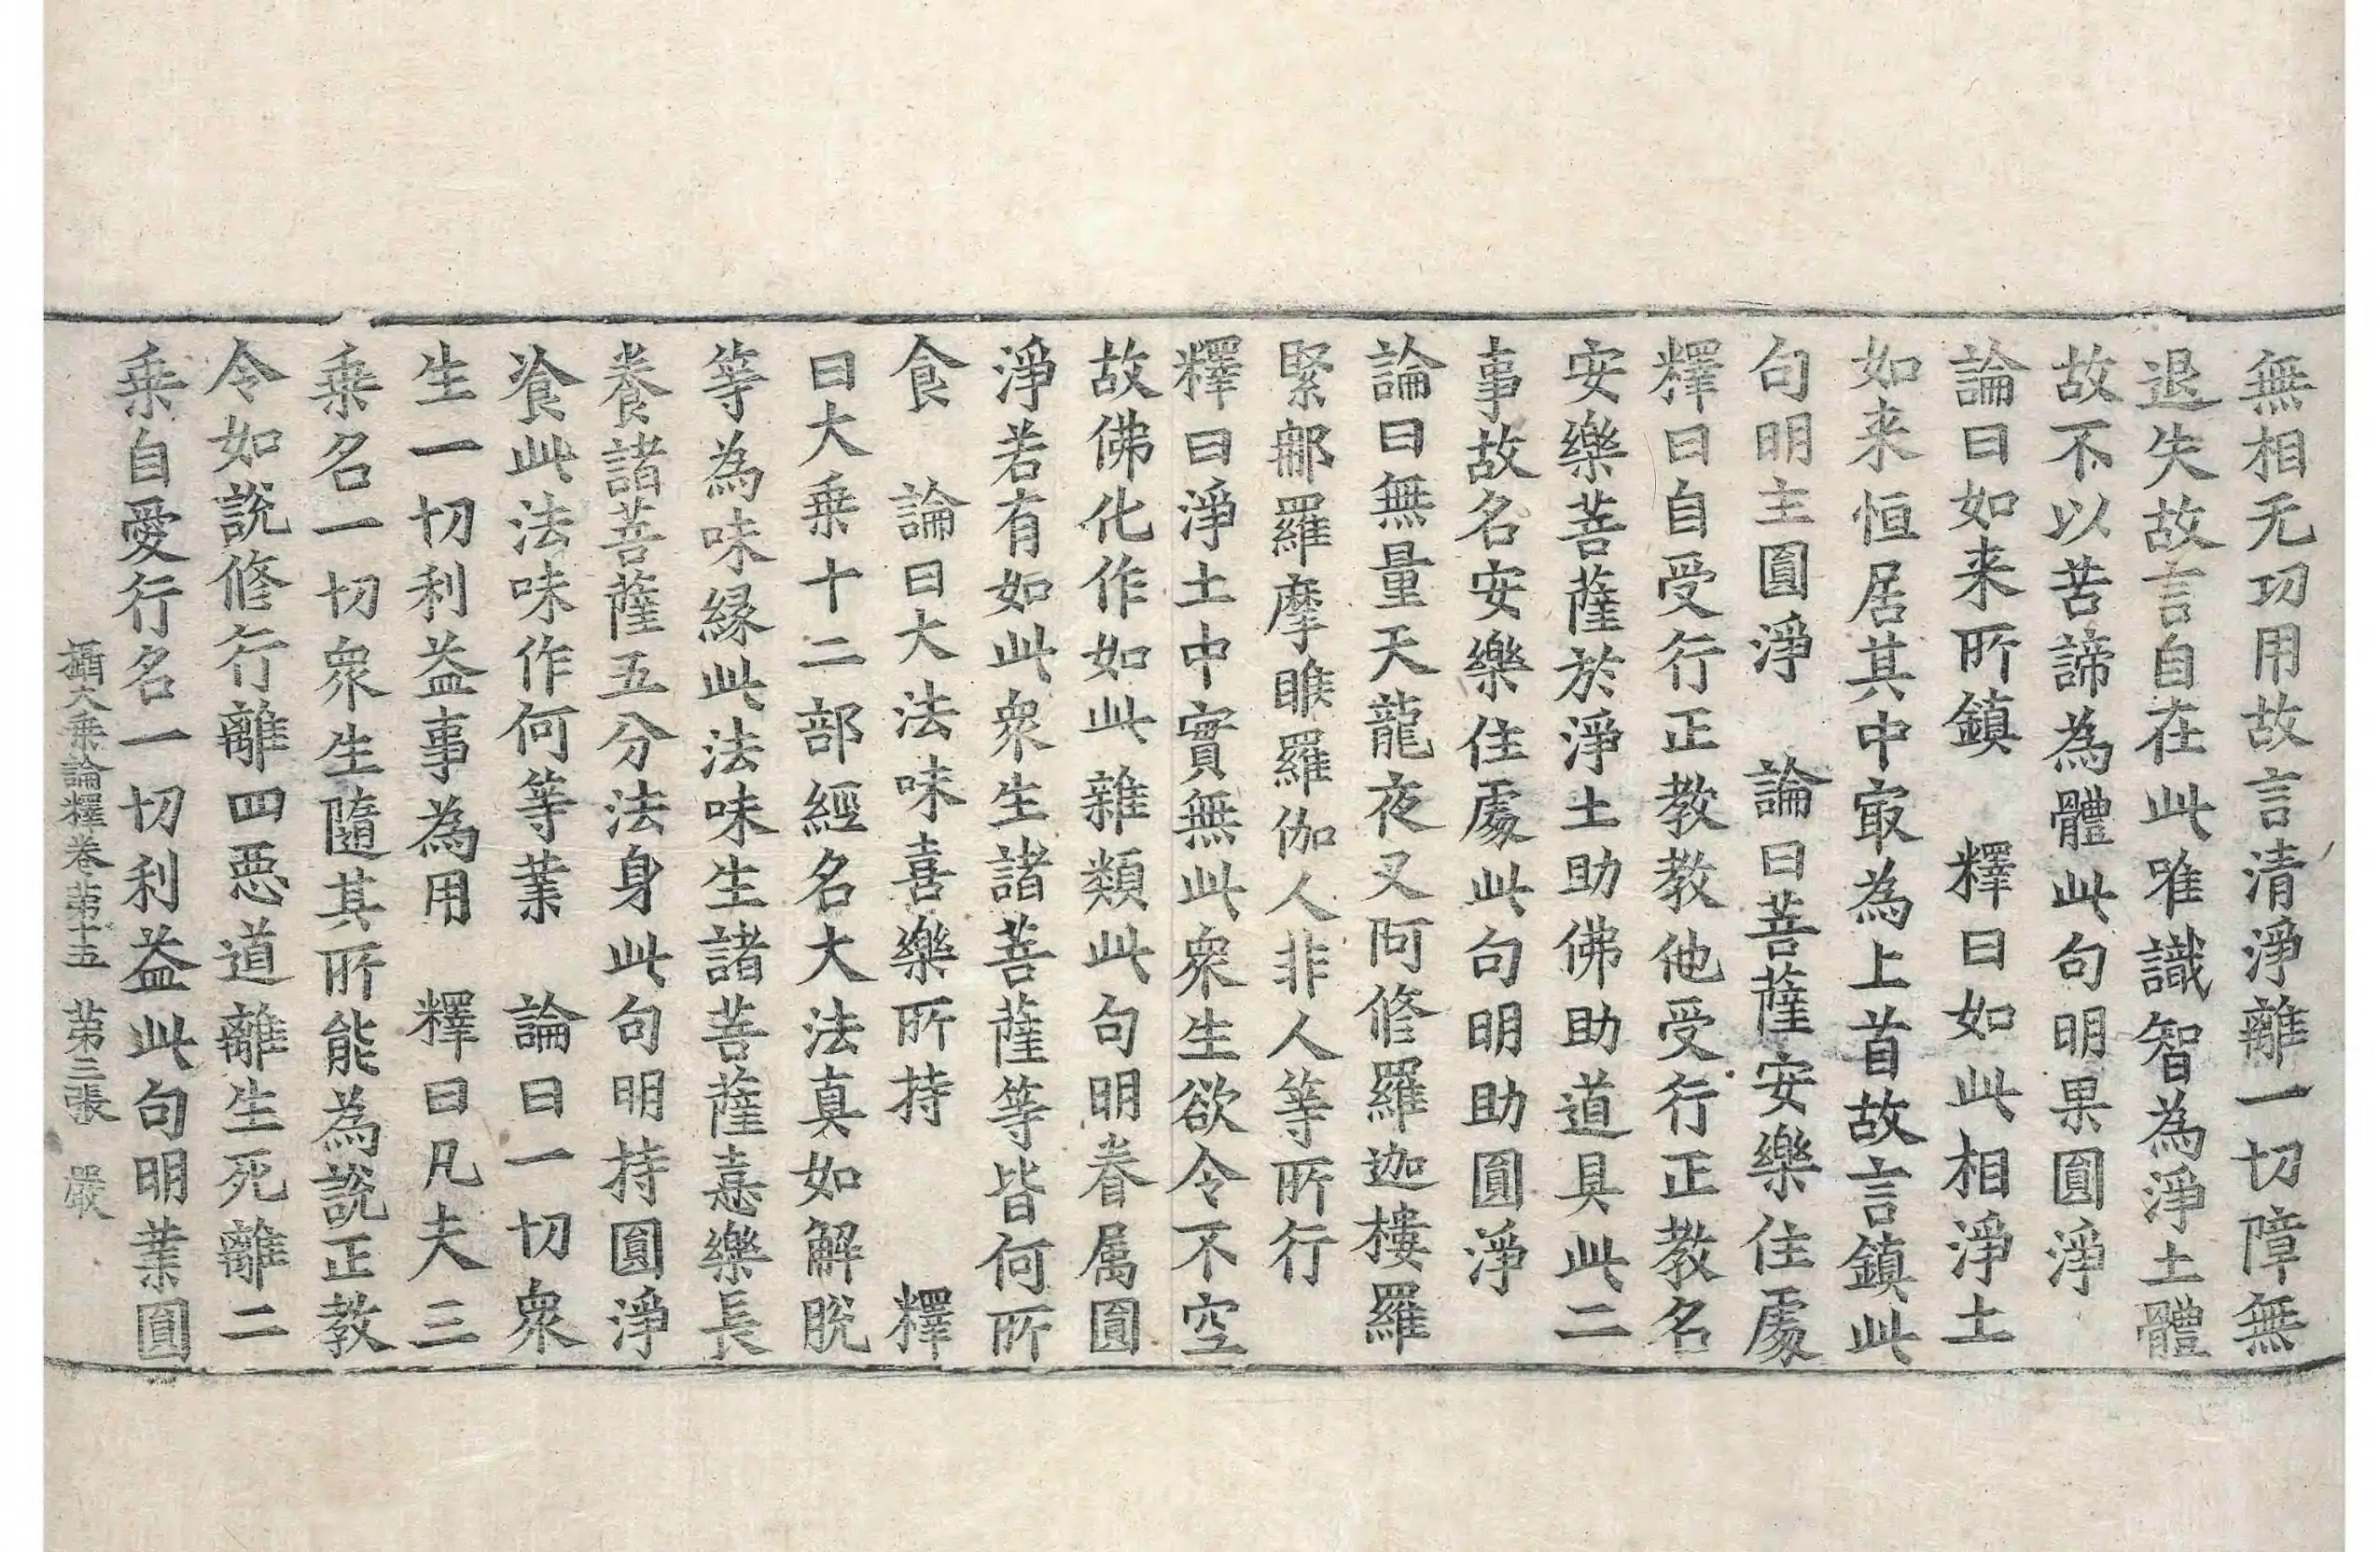 無相无功用故言清淨離一切障無
退失故言自在此唯識智為淨土體
故不以苦諦為體此句明果圓淨
論曰如来所鎮　釋曰如此相淨土
如来恒居其中㝡為上首故言鎮此
句明主圓淨　論曰菩薩安樂住處
釋曰自受行正教教他受行正教名
安樂菩薩於淨土助佛助道具此二
事故名安樂住處此句明助圓淨
論曰無量天龍夜叉阿修羅迦樓羅
緊那羅摩睺羅伽人非人等所行
釋曰淨土中實無此衆生欲令不空
故佛化作如此雜類此句明眷属圓
淨若有如此衆生諸菩薩等皆何所
食　論曰大法味喜樂所持　釋
曰大乗十二部經名大法真如解脫
等為味縁此法味生諸菩薩憙樂長
養諸菩薩五分法身此句明持圓淨
飡此法味作何等業　論曰一切衆
生一切利益事為用　釋曰凡夫三
乗名一切衆生隨其所能為說正教
令如說修行離四惡道離生死離二
乗自愛行名一切利益此句明業圓
攝大乗論釋卷苐十五　苐三張　嚴